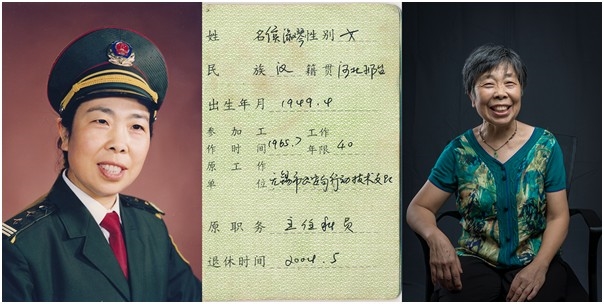 姓 名 侯淑琴 性别 女
民 族 汉 籍贯 河北邢台
出生年月 1949.4
参加工 工作
作时间 1965.7 年限 40
原工作
单 位 无锡市公安局行动技术支队
原职务 主任科员
退休时间 2004.5